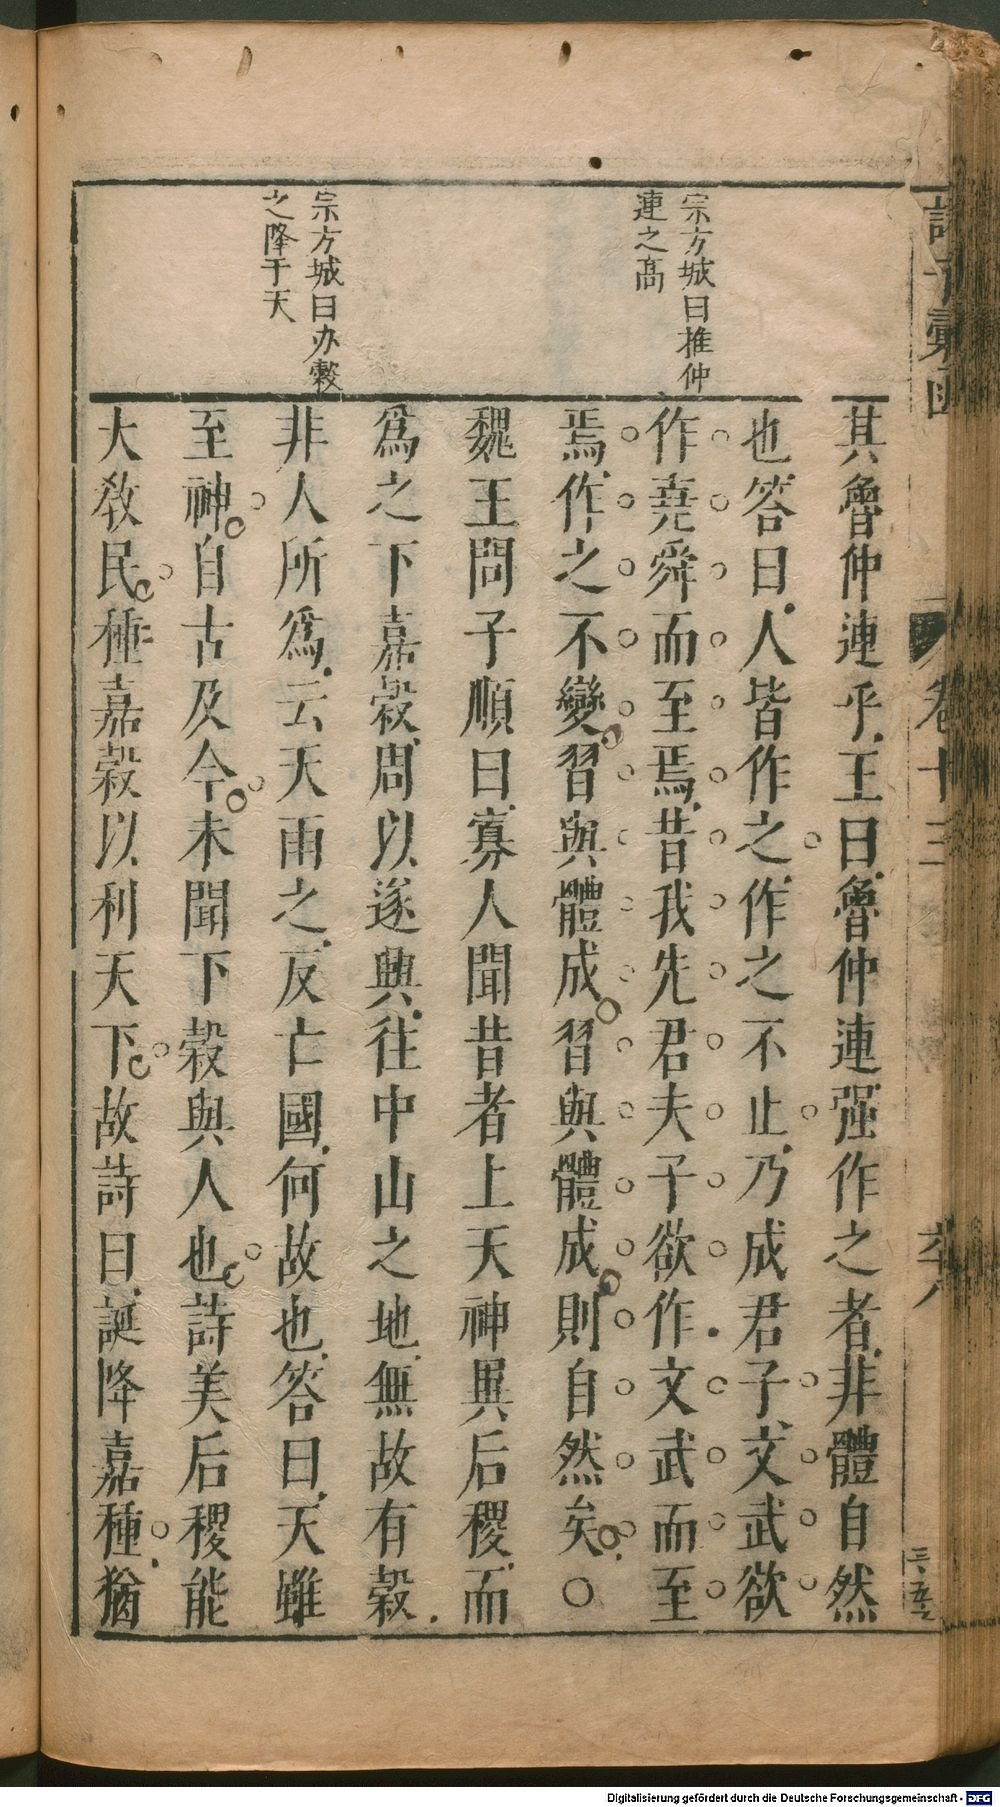 宗方城曰推仲
連之高
宗方城曰办穀
之降于天
其魯仲連乎王曰魯仲連强作之者非體自然
也答曰人皆作之作之不止乃成君子文武欲
作堯舜而至焉昔我先君夫子欲作文武而至
焉作之不變習與體成習與體成則自然矣〇
魏王問子順曰寡人聞昔者上天神異后稷而
爲之下嘉穀周以遂興往中山之地無故有穀
非人所爲云天雨之反亡國何故也答曰天雖
至神自古及今未聞下穀與人也詩美后稷能
大敎民種嘉穀以利天下故詩曰誕降嘉種猶
卷十三
Digitalisierung gefördert durch die Deutsche Forschungsgemeinschaft - DFG